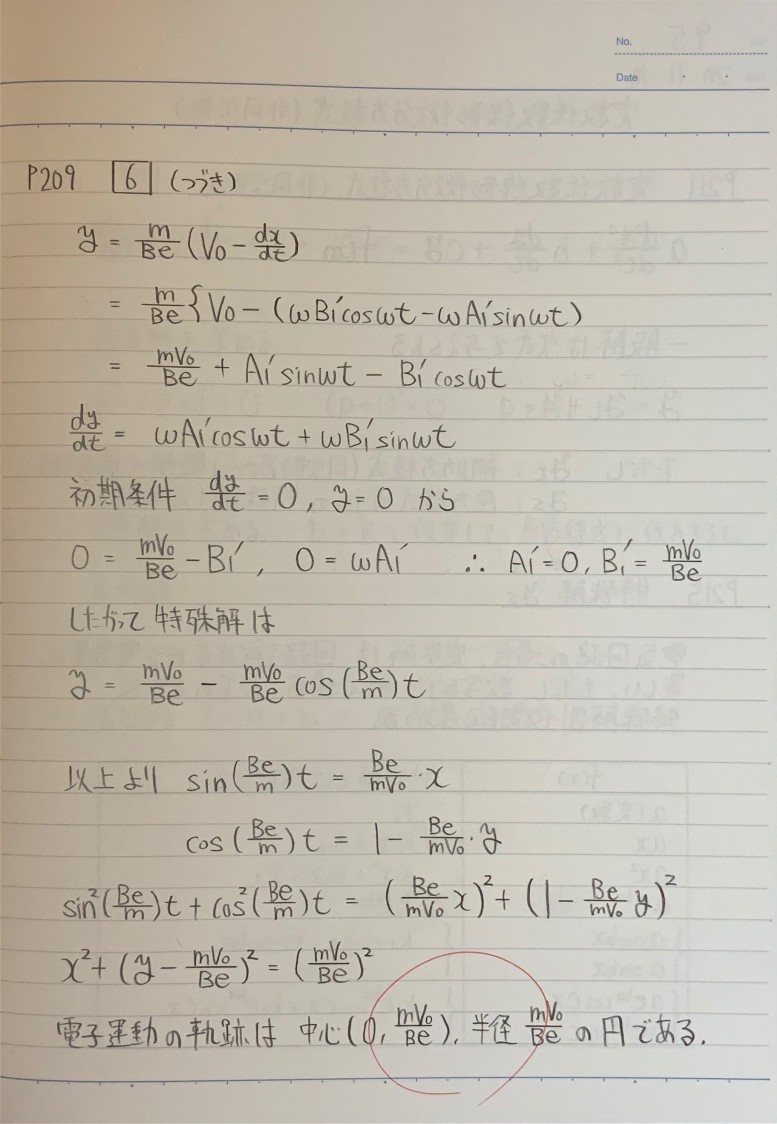 No.
Date
P209 6 (つづき)
y = m/Be (V₀ - dx/dt)
= m/Be { V₀ - (ωB₁'cosωt - ωA₁'sinωt)
= mV₀/Be + A₁'sinωt - B₁'cosωt
dy/dt = ωA₁'cosωt + ωB₁'sinωt
初期条件 dy/dt = 0, y = 0 から
0 = mV₀/Be - B₁', 0 = ωA₁' ∴ A₁' = 0, B₁' = mV₀/Be
したがって 特殊解は
y = mV₀/Be - mV₀/Be cos(Be/m)t
以上より sin(Be/m)t = Be/mV₀・x
cos(Be/m)t = 1 - Be/mV₀・y
sin²(Be/m)t + cos²(Be/m)t = (Be/mV₀ x)² + (1 - Be/mV₀ y)²
x² + (y - mV₀/Be)² = (mV₀/Be)²
電子運動の軌跡は 中心(0, mV₀/Be), 半径 mV₀/Be の円である.